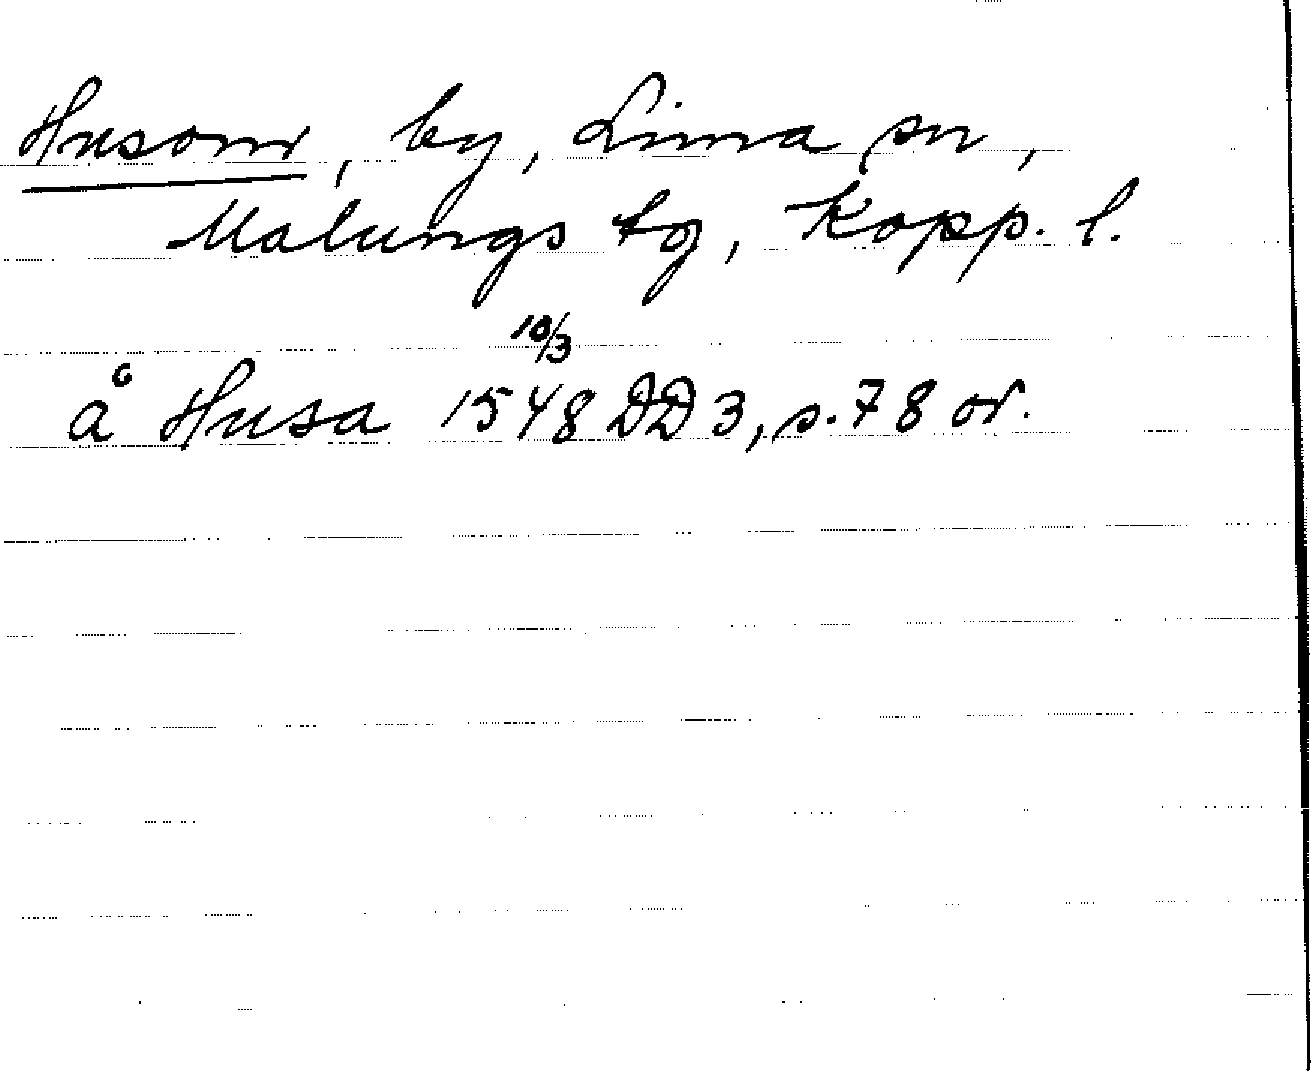 Husom, by, Lima sn,
Malungs tg, Kopp. l.
10/3
å Husa 1548 DD 3, s. 78 or.